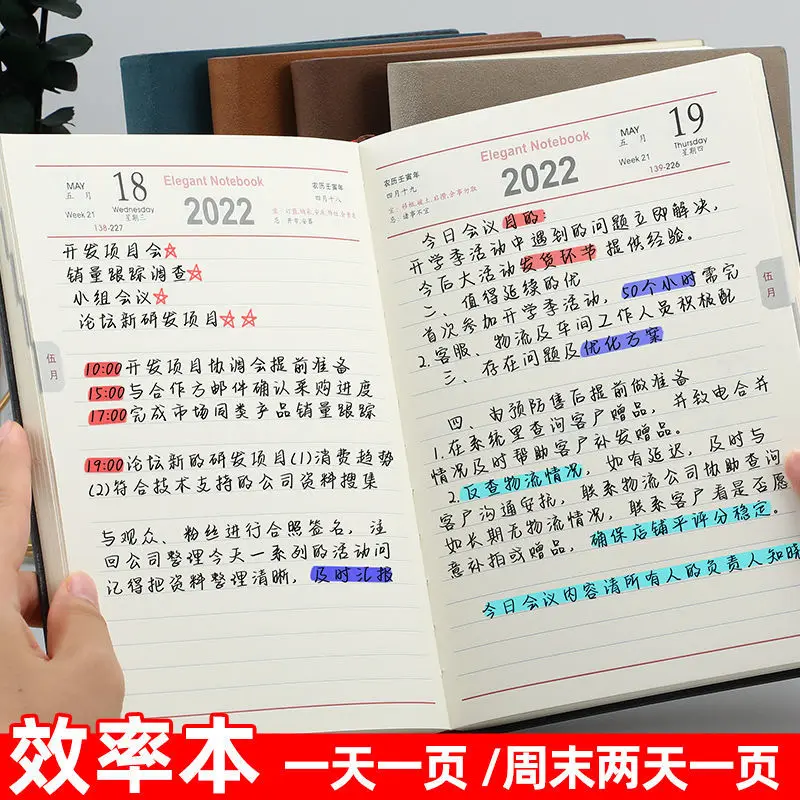 MAY
五月
18
Wednesday
星期三
Elegant Notebook
2022
农历壬寅年
四月十八
Week 21
138-227
开发项目会☆
销量跟踪调查☆
小组会议☆
论坛新研发项目☆☆
10:00开发项目协调会提前准备
15:00与合作方邮件确认采购进度
17:00完成市场同类产品销量跟踪
19:00论坛新的研发项目(1)消费趋势
(2)符合技术支持的公司资料搜集
与观众、粉丝进行合照签名,注
回公司整理今天一系列的活动问
记得把资料整理清晰,及时汇报
伍月
农历壬寅年
四月十九
Elegant Notebook
2022
MAY
五月
19
Thursday
星期四
Week 21
139-226
忌:诸事不宜
今日会议目的:
开学季活动中遇到的问题立即解决,
今后大活动发货环节提供经验。
二、值得延续的优
首次参加开学季活动,50个小时需完
2.客服、物流及车间工作人员积极配
三、存在问题及优化方案
四、由预防售后提前做准备
1.在系统里查询客户赠品,并致电合并
情况及时帮助客户补发赠品。
2.反查物流情况,如有延迟,及时与
客户沟通安抚,联系物流公司协助查询
如长期无物流情况,联系客户看是否愿
意补拍或赠品,确保店铺平评分稳定。
今日会议内容请所有人的负责人知晓
伍月
效率本 一天一页 /周末两天一页